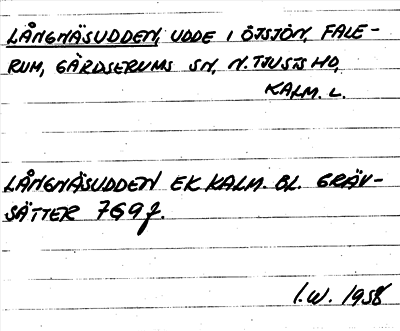 LÅNGNÄSUDDEN, UDDE I ÖJSJÖN, FALE-
RUM, GÄRDSERUMS SN, N. TJUSTS HD,
KALM. L.
LÅNGNÄSUDDEN EK KALM. BL. GRÄV-
SÄTTER 769f.
I.W. 1958